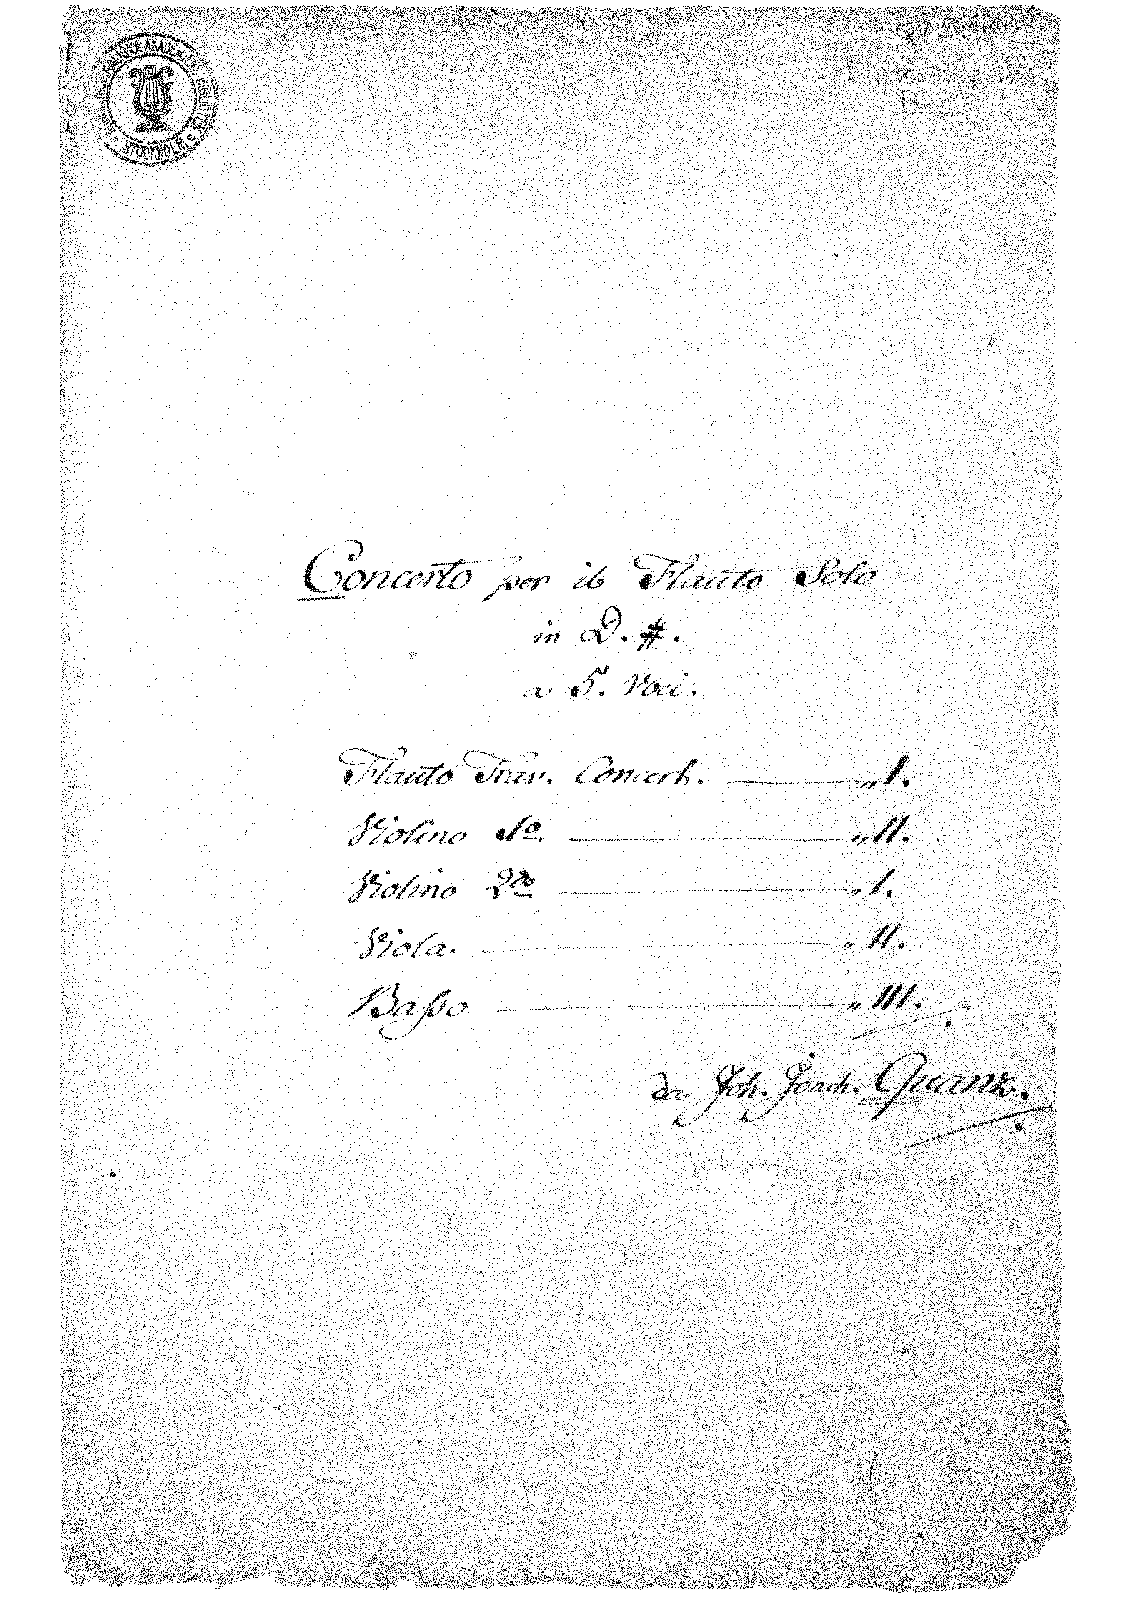 Concerto per il Flauto Solo
in D. #.
a 5. Voci.
Flauto Trav. Concert. — „ I.
Violino 1o. — „ II.
Violino 2do — „ I.
Viola. — „ II.
Basso — „ III.
da Joh. Joach. Quanz.